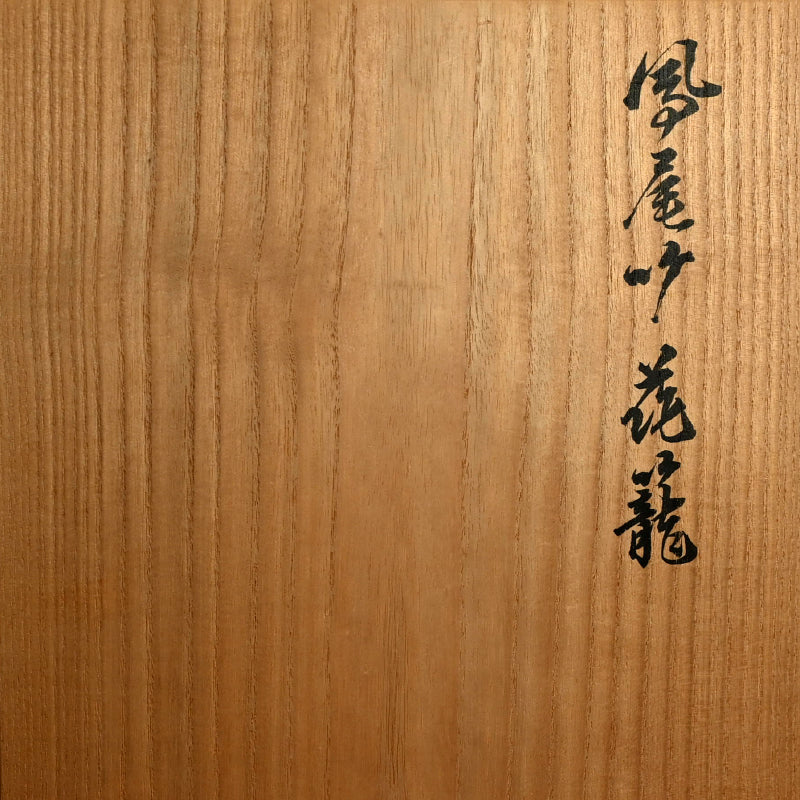 鳳尾竹花籠